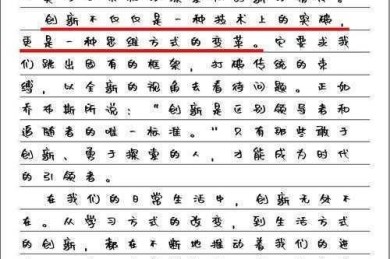 创新不仅仅是一种技术上的突破，
更是一种思维方式的变革。它要求我
们跳出固有的框架，打破传统的束
缚，以全新的视角去看待问题。正如
乔布斯所说："创新是区别领导者和
追随者的唯一标准。"只有那些敢于
创新、勇于探索的人，才能成为时代
的引领者。
在我们的日常生活中，创新无处不
在。从学习方式的改变，到生活方式
的创新，都在不断地推动着我们的进